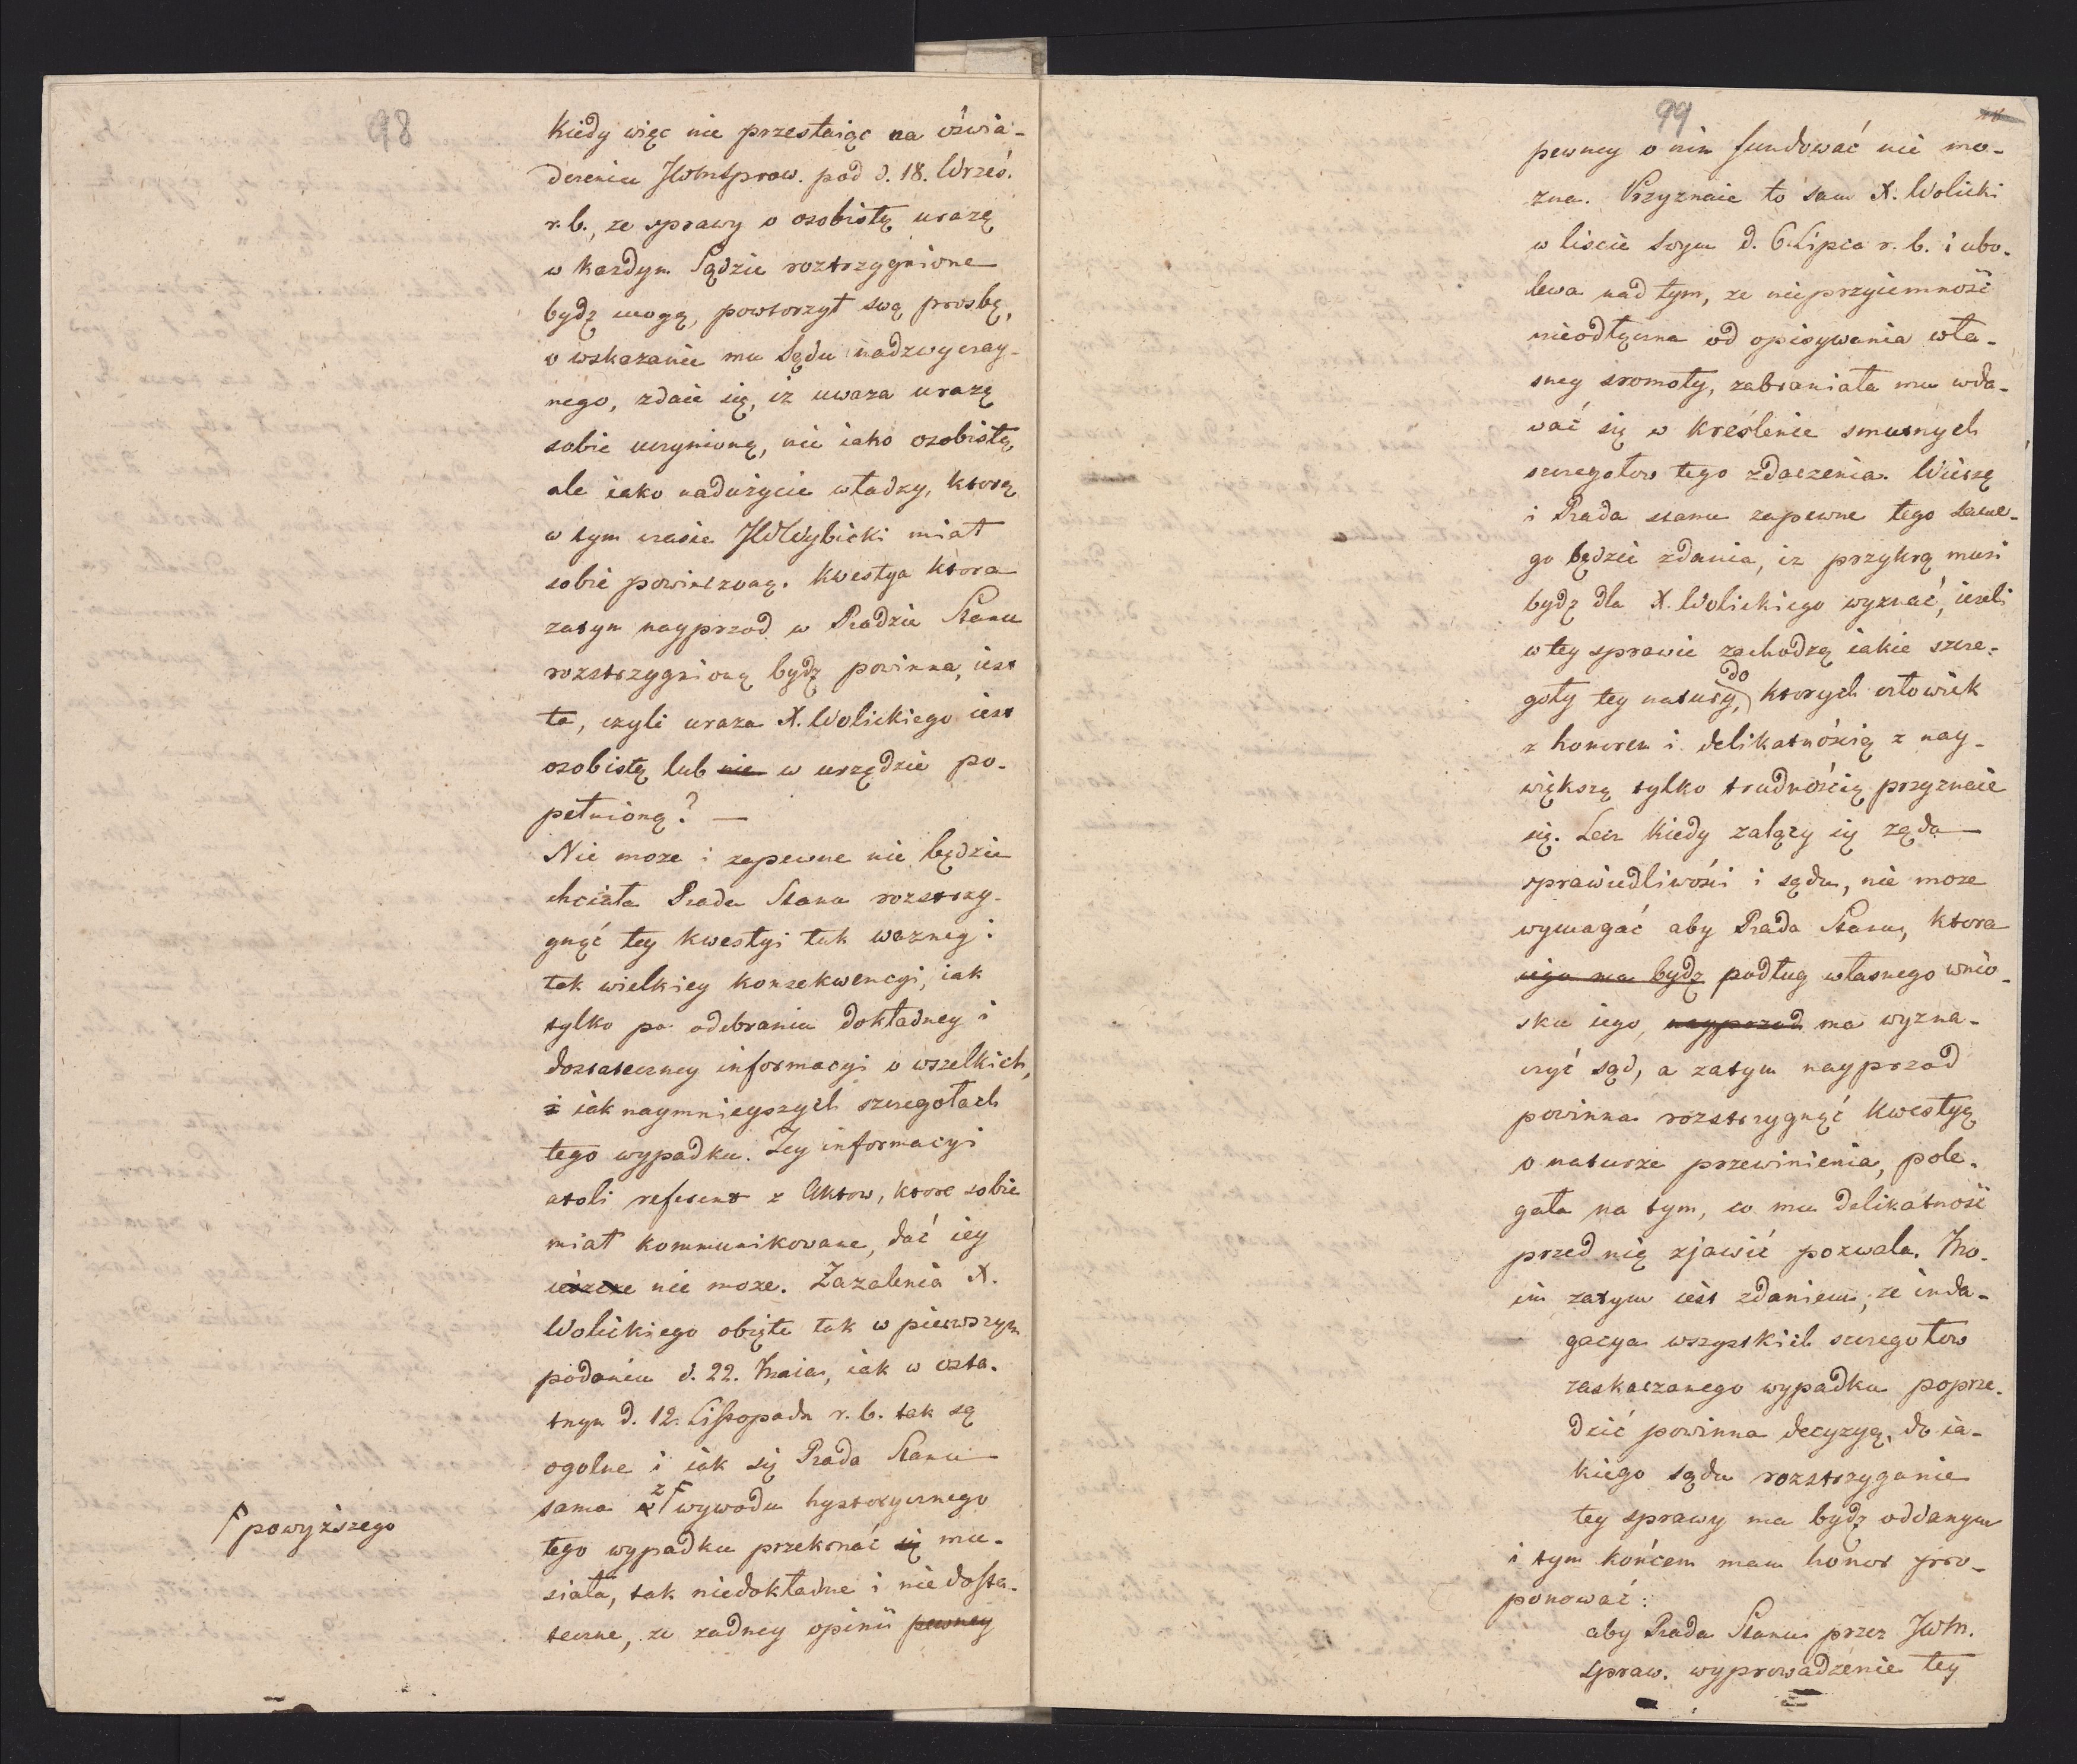 98
Kiedy więc nie przestaiąc na oświa-
dczeniu JWMSpraw. pod d. 18. Wrześ.
r. b., ze sprawy o osobistą urazę
w kazdym Sądzie roztrzygnione
bydz mogą, powtorzył swą prosbę,
o wskazanie mu Sądu nadzwyczay-
nego, zdaie się, iz uwaza urazę
sobie uczynioną, nie iako osobistą
ale iako nadużycie władzy, ktorą
w tym czasie JWWybicki miał
sobie powierzoną. Kwestya ktora
zatym nayprzod w Radzie Stanu
rozstrzygnioną bydz powinna, iest
ta, czyli uraza X. Wolickiego iest
osobistą lub nie w urzędzie po-
pełnioną? —
Nie moze i zapewne nie będzie
chciała Rada Stanu rozstrzy-
gnąć tey kwestyi tak wazney i
tak wielkiey konsekwencyi, iak
tylko po odebraniu dokładney i
dostateczney informacyi o wszelkich,
i iak naymnieyszych szczegołach
tego wypadku. Tey informacyi
atoli referent z Aktow, ktore sobie
miał kommunikowane, dać iey
ieszcze nie moze. Zazalenia X.
Wolickiego obięte tak w pierwszym
podaniu d. 22. Maia, iak w osta-
tnym d. 12. Listopada r. b. tak są
ogolne i iak się Rada Stanu
sama z wywodu hystorycznego
powyższego
tego wypadku przekonać się mu-
siała, tak niedokładne i niedosta-
teczne, ze zadney opinii pewney
99
pewney o nim fundować nie mo-
zna. Przyznaie to sam X. Wolicki
w liscie swym d. 6. Lipca r. b. i ubo-
lewa nad tym, ze nieprzyiemność
nieodłączna od opisywania wła-
sney sromoty, zabraniała mu wda-
wać się w kreślenie smutnych
szczegołow tego zdarzenia. Wieszę
i Rada stanu zapewne tego same-
go będzie zdania, iz przykrą musi
bydz dla X. Wolickiego wyznać, iezeli
w tey sprawie zachodzą iakie szcze-
goły tey natury, do ktorych człowiek
z honorem i delikatnością z nay-
większą tylko trudnością przyznaie
się. Lecz kiedy zalący się ząda
sprawiedliwości i sądu, nie moze
wymagać aby Rada Stanu, ktora
iego ma bydz podług własnego wnio-
sku iego, nayprzod ma wyzna-
czyć sąd, a zatym nayprzod
powinna rozstrzygnąć kwestyą
o naturze przewinienia, pole-
gała na tym, co mu delikatność
przed nią zjawić pozwala. Mo-
im zatym iest zdaniem, ze inda-
gacya wszystkich szczegołow
zaskarzanego wypadku poprze-
dzić powinna decyzyą, do ia-
kiego sądu rozstrzyganie
tey sprawy ma bydz oddanym
i tym końcem mam honor pro-
ponować:
aby Rada Stanu przez JWM.
Spraw. wyprowadzenie tey